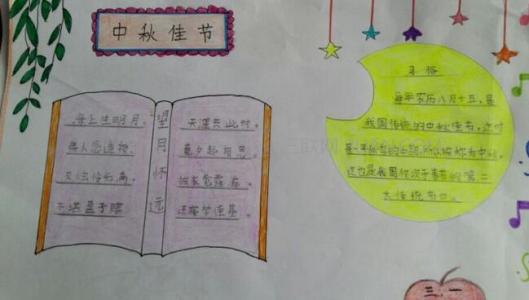 中秋佳节
望月怀远
海上生明月，
天涯共此时。
情人怨遥夜，
竟夕起相思。
灭烛怜光满，
披衣觉露滋。
不堪盈手赠，
还寝梦佳期。
习俗
每年农历八月十五，是
我国传统的中秋佳节。这时
是一年秋季的中期，所以被称为中秋。
这也是我国仅次于春节的第二
大传统节日。